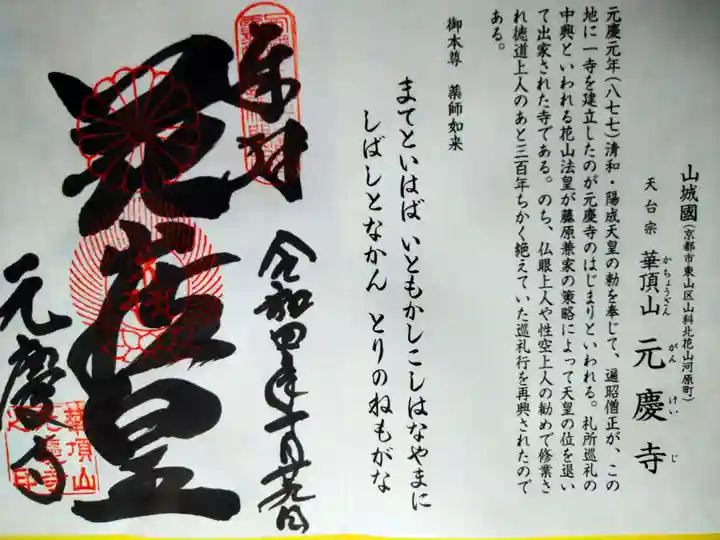 山城國(京都市東山区山科北花山河原町)
天台宗 華頂山 元慶寺
かちょうざん がんけいじ
元慶元年(八七七)清和・陽成天皇の勅を奉じて、遍昭僧正が、この
地に一寺を建立したのが元慶寺のはじまりといわれる。札所巡礼の
中興といわれる花山法皇が藤原兼家の策略によって天皇の位を退い
て出家された寺である。のち、仏眼上人や性空上人の勧めで修業さ
れ徳道上人のあと三百年ちかく絶えていた巡礼行を再興されたので
ある。
御本尊 薬師如来
まてといはば いともかしこしはなやまに
しばしとなかん とりのねもがな
奉拝
令和四年十月廿九日
法皇
元慶寺
華頂山
元慶寺
印